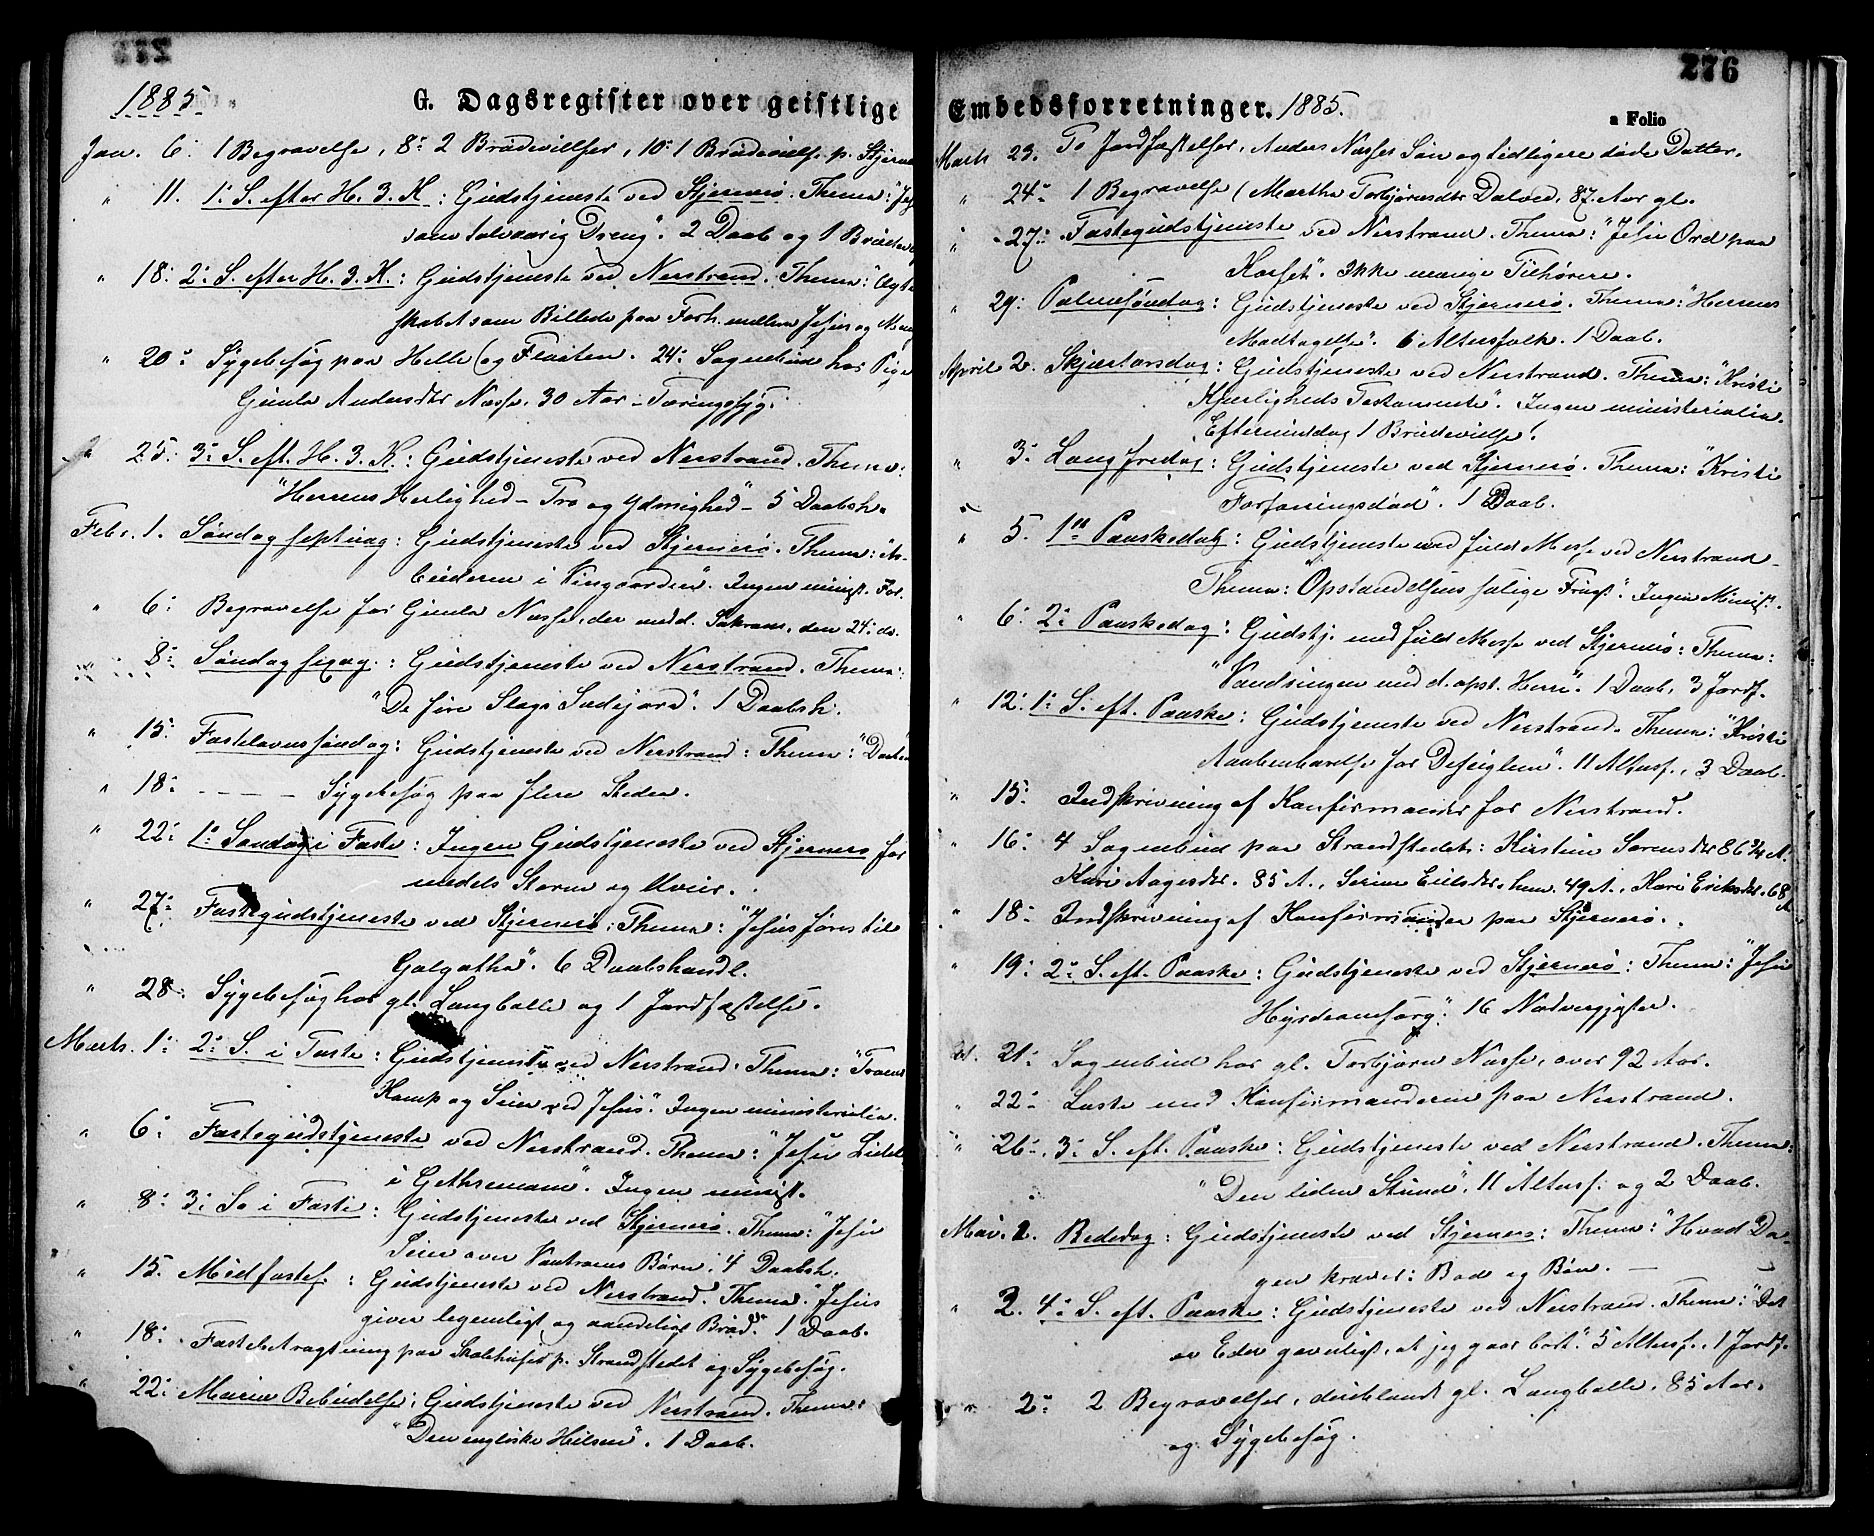 1885
G. Dagsregister over geistlige
Jan. 6. 1 Begravelse, 8: 2 Brudevielser, 10: 1 Brudevielse p. Stjerner
" 11. 1: S. efter H. 3. K: Gudstjeneste ved Stjernerø. Thema: "Jes
som tolvaarig Dreng". 2 Daab og 1 Brudev
" 18: 2: S. efter H. 3. K.: Gudstjeneste ved Nerstrand. Thema: "Egte
skabet som Billede paa Forh. mellem Jesus og Men
" 20: Sygebesøg paa Helle (og Flaaten. 24: Sognebud hos Pige
Gunla Andersdtr Næsse, 30 Aar - Tæringssyg.
" 25: 3: S. eft. H. 3. K.: Gudstjeneste ved Nerstrand. Thema:
"Herrens Herlighed - Tro og Ydmighed" - 5 Daabsh.
Febr. 1. Søndag septuag: Gudstjeneste ved Stjernerø. Thema: "Ar-
beiderne i Vingaarden". Ingen minist. For.
" 6: Begravelse for Gunla Næsse, der medd. Sakram. den 24: ds.
" 8: Søndag sexag.: Gudstjeneste ved Nerstrand. Thema:
"De fire Slags Sædejord". 1 Daabsh.
" 15: Fastelavnssøndag: Gudstjeneste ved Nerstrand: Thema:
" 18: - - - Sygebesøg paa flere Steder.
" 22: 1: Søndag i Faste: Ingen Gudstjeneste ved Stjernerø for
medels Storm og Uveir.
" 27: Fastegudstjeneste ved Stjernerø: Thema: "Jesus føres til
Golgatha". 6 Daabshandl.
" 28: Sygebesøg hos gl. Langballe og 1 Jordfæstelse.
Marts. 1: 2: S. i Faste: Gudstjeneste ved Nerstrand. Thema: "Troens
Kamp og Seier ved Jesus". Ingen ministerialia.
" 6: Fastegudstjeneste ved Nerstrand. Thema: "Jesu Lidel
i Gethsemane". Ingen minist.
" 8: 3: S. i Faste: Gudstjeneste ved Stjernerø. Thema: "Jesu
Seier over Vantroens Børn: 4 Daabsh.
" 15. Midfastes.: Gudstjeneste ved Nerstrand. Thema: "Jesus
giver legemligt og aandeligt Brød". 1 Daab.
" 18: Fastebetragtning paa Skolehuset p. Strandstedet og Sygebesøg.
" 22: Mariæ Bebudelse: Gudstjeneste ved Nerstrand. Thema:
"Den engleske Hilsen". 1 Daab.
276
Embedsforretninger. 1885.
a Folio
Marts 23. To Jordfæstelser, Anders Næsses Søn og tidligere døde Datter.
" 24: 1 Begravelse (Martha Torbjørnsdtr Dalved, 87 Aar gl.
" 27: Fastegudstjeneste ved Nerstrand. Thema: "Jesu Ord paa
Korset". Ikke mange Tilhørere.
" 29: Palmesøndag: Gudstjeneste ved Stjernerø. Thema: "Herrens
Modtagelse". 6 Altersfolk. 1 Daab.
April 2. Skjærtorsdag: Gudstjeneste ved Nerstrand. Thema: "Kristi
Kjærligheds Testamente". Ingen ministerialia.
Eftermiddag 1 Brudevielse!
" 3: Langfredag: Gudstjeneste ved Stjernerø. Thema: "Kristi
Forsoningsdød". 1 Daab.
" 5. 1ste Paaskedag: Gudstjeneste med fuld Messe ved Nerstrand -
Thema: "Opstandelsens salige Frugt". Ingen Minist.
" 6: 2: Paaskedag: Gudstj. med fuld Messe ved Stjernerø: Thema:
"Vandringen med d. opst. Herre". 1 Daab, 3 Jordf.
" 12: 1: S. eft. Paaske: Gudstjeneste ved Nerstrand. Thema: "Kristi
Aabenbarelse for Disciplene". 11 Altersf., 3 Daab.
" 15: Indskrivning af Konfirmander for Nerstrand.
" 16: 4 Sognebud paa Strandstedet: Kirstine Sørensdtr 86 3/4 A.
Kari Aagesdtr. 85 A., Serine Eilsdtr. hem. 49 A., Kari Eriksdtr. 68 A
" 18: Indskrivning af Konfirmander paa Stjernerø.
" 19: 2: S. eft. Paaske: Gudstjeneste ved Stjernerø: Thema: "Jesu
Hyrdeomsorg". 16 Nadvergjester.
21: Sognebud hos gl. Torbjørn Næsse, over 92 Aar.
" 22: Læste med Konfirmanderne paa Nerstrand.
" 26: 3: S. eft. Paaske: Gudstjeneste ved Nerstrand. Thema:
"Den liden Stund", 11 Altersf. og 2 Daab.
Mai. 1. Bededag: Gudstjeneste ved Stjernerø: Thema: "Hvad Da-
gen kræver: Bod og Bøn. -
" 3. 4: S. eft. Paaske: Gudstjeneste ved Nerstrand. Thema: "Det
er Eder gavnligt, at jeg gaar bort". 5 Altersf., 1 Jordf.
" 2: 2 Begravelser, deriblandt gl. Langballe, 85 Aar,
og Sygebesøg.